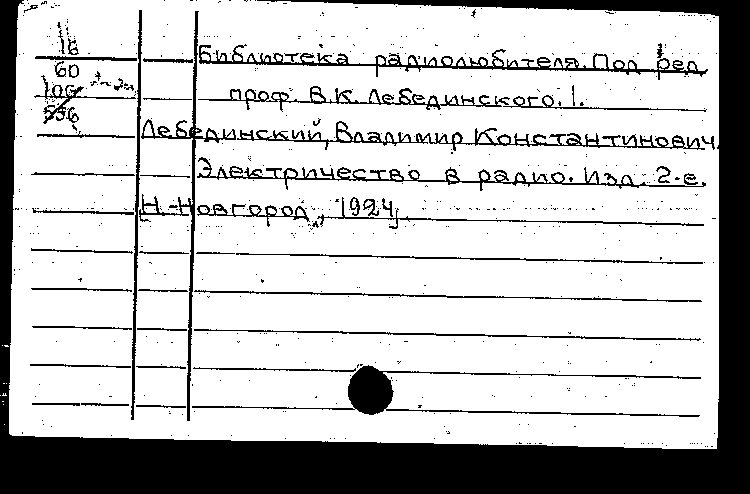 16
60
Библиотека радиолюбителя. Под ред
проф. В.К. Лебединского. 1.
Лебединский, Владимир Константинович.
Электричество в радио. Изд. 2-е.
Н.-Новгород, 1924.